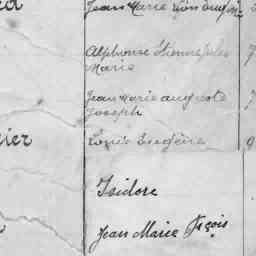 Jean Marie
Alphonse Etienne Jules
Marie
Jean Marie auguste
Joseph
ier Louis Eugène 9
Isidore
Jean Marie Fçois